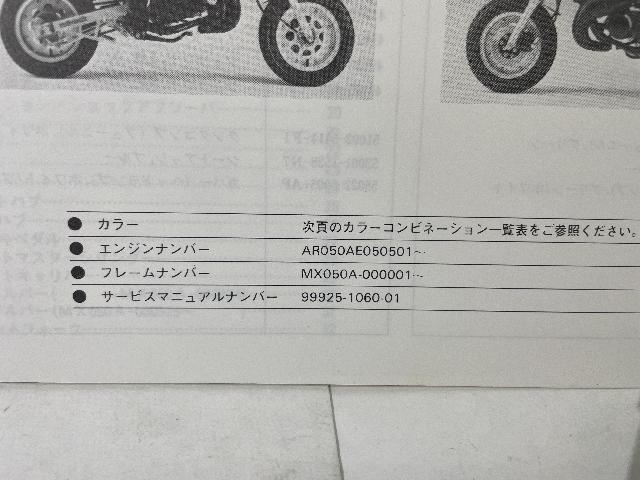 ● カラー 次頁のカラーコンビネーション一覧表をご参照ください。
● エンジンナンバー AR050AE050501~
● フレームナンバー MX050A-000001~
● サービスマニュアルナンバー 99925-1060-01